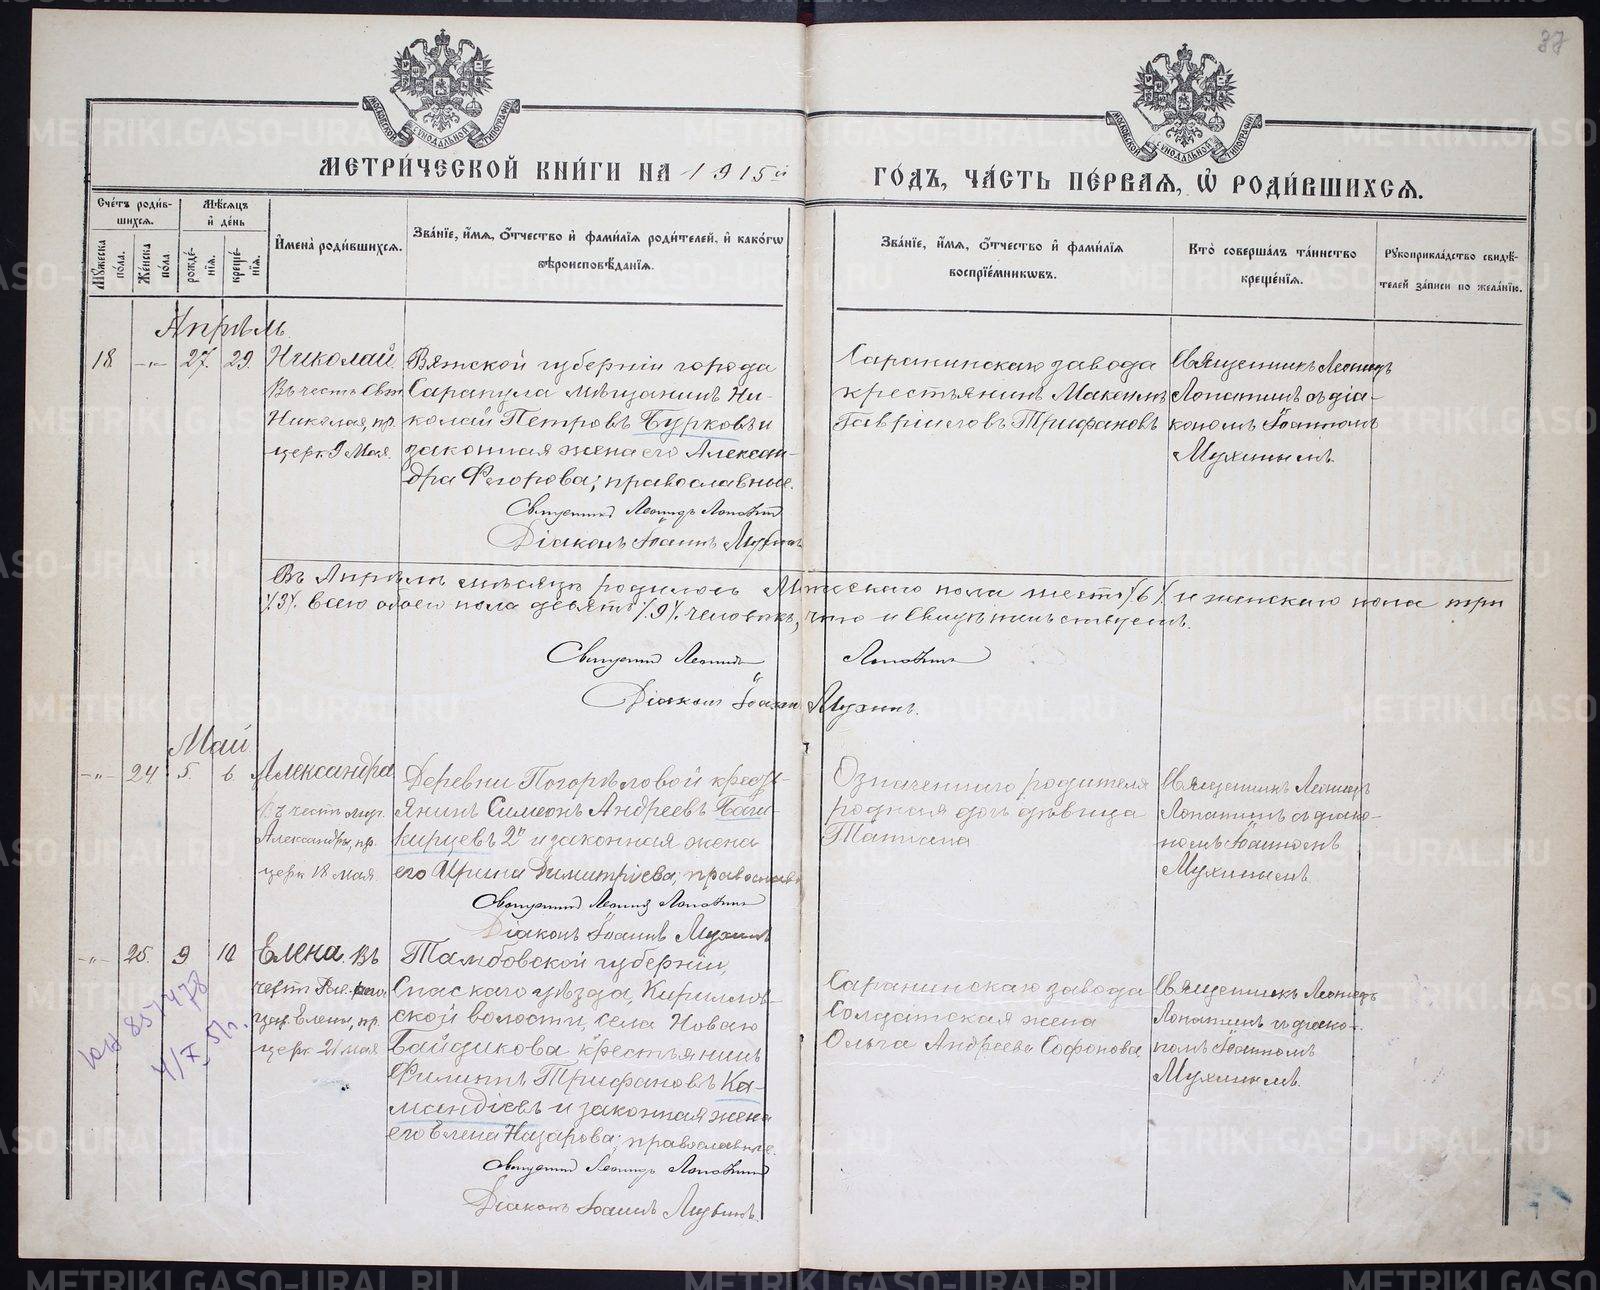 87
МОСКОВСКОЙ СѴНОДАЛЬНОЙ ТИПОГРАФІИ
МОСКОВСКОЙ СѴНОДАЛЬНОЙ ТИПОГРАФІИ
МЕТРИ́ЧЕСКОЙ КНИ́ГИ НА 1915й
ГО́ДЪ, ЧА́СТЬ ПЕ́РВАѦ, Ѡ҆ РОДИ́ВШИХСѦ.
Сче́тъ роди́в-
шихсѧ.
Мꙋ́жеска по́ла.
Же́нска по́ла
Мѣ́сѧцъ
и҆ де́нь
рожде́-
нїѧ.
креще́-
нїѧ.
И҆мена̀ роди́вшихсѧ.
Зва́нїе, и҆́мѧ, ѻ҆́тчество и҆ фами́лїѧ роди́телей, и҆ како́гѡ
вѣроисповѣ́данїѧ.
Зва́нїе, и҆́мѧ, ѻ҆́тчество и҆ фами́лїѧ
воспрїе́мникѡвъ.
Кто̀ соверша́лъ та́инство
креще́нїѧ.
Рꙋкоприкла́дство свидѣ́-
телей за́писи по жела́нїю.
Апрѣль.
18. -„- 27. 29.
Николай.
Въ честь Свт.
Николая, пр.
церк. 9 Мая.
Вятской губерніи города
Сарапула мѣщанинъ Ни-
колай Петровъ Бурковъ и
законная жена его Алексан-
дра Федорова; православные.
Священникъ Леонидъ Лопатинъ
Діаконъ Іоаннъ Мухинъ
Саранинскаго завода
крестьянинъ Максимъ
Гавріиловъ Трифановъ
Священникъ Леонидъ
Лопатинъ съ діа-
кономъ Іоанномъ
Мухинымъ.
Въ Апрѣлѣ мѣсяцѣ родилось Мужескаго пола шесть /6/ и женскаго пола три
/3/. всего обоего пола девять /9/. человѣкъ, что и свидѣтельствуемъ.
Священникъ Леонидъ Лопатинъ
Діаконъ Іоаннъ Мухинъ.
Май
-„- 24 5. 6.
Александра
Въ честь муч.
Александры, пр.
церк 18 мая
Деревни Погорѣловой кресть-
янинъ Симеонъ Андреевъ
2й и законная жена
его Ирина Димитріева; православн
Священникъ Леонидъ Лопатинъ
Діаконъ Іоаннъ Мухинъ
Означеннаго родителя
родная дочь дѣвица
Татиана
Священникъ Леонидъ
Лопатинъ съ діако-
номъ Іоанномъ
Мухинымъ.
-„- 25. 9 10
Елена. Въ
честь
цар. Елены, пр.
церк 21 мая
Тамбовской губерніи,
Спаскаго уѣзда, Кирилов-
ской волости, села Новаго
Байдикова, крестьянинъ
Филиппъ Трифановъ Ка-
мендіевъ и законная жена
его Елена Назарова; православные.
Священникъ Леонидъ Лопатинъ
Діаконъ Іоаннъ Мухинъ.
Саранинскаго завода
Солдатская жена
Ольга Андреева Софонова
Священникъ Леонидъ
Лопатинъ и діако-
номъ Іоанномъ
Мухинымъ.
METRIKI.GASO-URAL.RU